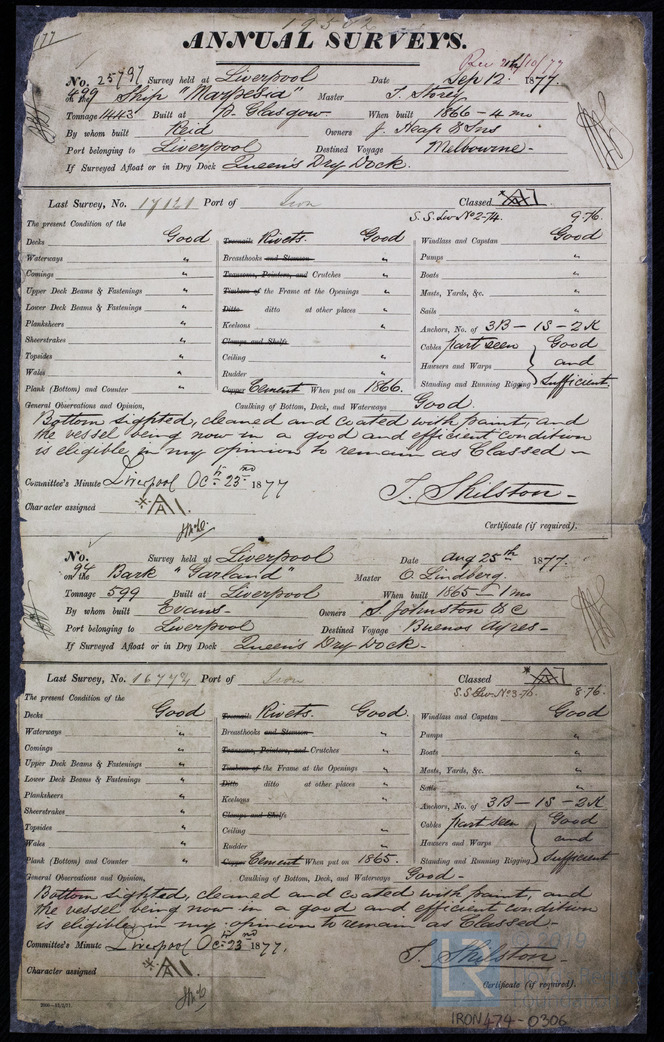 ANNUAL SURVEYS.
No. 25797 Survey held at Liverpool Date Sep 12. 1877.
on the Ship "Marpesia" Master T. Storey
Tonnage 1443 Built at P. Glasgow When built 1866 - 4 mo
By whom built Reid Owners J. Heap & Sns
Port belonging to Liverpool Destined Voyage Melbourne -
If Surveyed Afloat or in Dry Dock Queen's Dry Dock.
Last Survey, No. 17121 Port of Iron Classed A1
S.S. Liv No 2-74. 9.76.
The present Condition of the
Decks Good Treenails Rivets. Good Windlass and Capstan Good
Waterways " Breasthooks and Stemson " Pumps "
Comings " Transoms, Pointers, and Crutches " Boats "
Upper Deck Beams & Fastenings " Timbers of the Frame at the Openings " Masts, Yards, &c. "
Lower Deck Beams & Fastenings " Ditto ditto at other places " Sails "
Planksheers " Keelsons " Anchors, No. of 3B - 1S - 2K
Sheerstrakes " Clamps and Shelfs Cables part seen Good
Topsides " Ceiling " Hawsers and Warps and
Wales " Rudder " Standing and Running Rigging Sufficient.
Plank (Bottom) and Counter " Copper Cement When put on 1866.
General Observations and Opinion, Caulking of Bottom, Deck, and Waterways Good.
Bottom sighted, cleaned and coated with paint, and
the vessel being now in a good and efficient condition
is eligible in my opinion to remain as Classed -
Committee's Minute Liverpool Oct. 23rd 1877
T. Skilston -
Character assigned A1
Certificate (if required).
No. Survey held at Liverpool Date Aug 25th 1877.
on the Bark "Garland" Master O. Lindberg.
Tonnage 599 Built at Liverpool When built 1865 - 1 mo
By whom built Evans - Owners S. Johnston & C
Port belonging to Liverpool Destined Voyage Buenos Ayres -
If Surveyed Afloat or in Dry Dock Queen's Dry Dock -
Last Survey, No. Port of Iron Classed A1
S.S. Liv No 3-76. 8.76.
The present Condition of the
Decks Good Treenails Rivets. Good. Windlass and Capstan Good
Waterways " Breasthooks and Stemson " Pumps "
Comings " Transoms, Pointers, and Crutches " Boats "
Upper Deck Beams & Fastenings " Timbers of the Frame at the Openings " Masts, Yards, &c. "
Lower Deck Beams & Fastenings " Ditto ditto at other places " Sails "
Planksheers " Keelsons " Anchors, No. of 3B - 1S - 2K
Sheerstrakes " Clamps and Shelfs Cables part seen Good
Topsides " Ceiling " Hawsers and Warps and
Wales " Rudder " Standing and Running Rigging Sufficient
Plank (Bottom) and Counter " Copper Cement When put on 1865.
General Observations and Opinion, Caulking of Bottom, Deck, and Waterways Good -
Bottom sighted, cleaned and coated with paint, and
the vessel being now in a good and efficient condition
is eligible in my opinion to remain as Classed -
Committee's Minute Liverpool Oct. 23rd 1877.
T. Skilston -
Character assigned A1
Certificate (if required).
LR
IRON474-0306